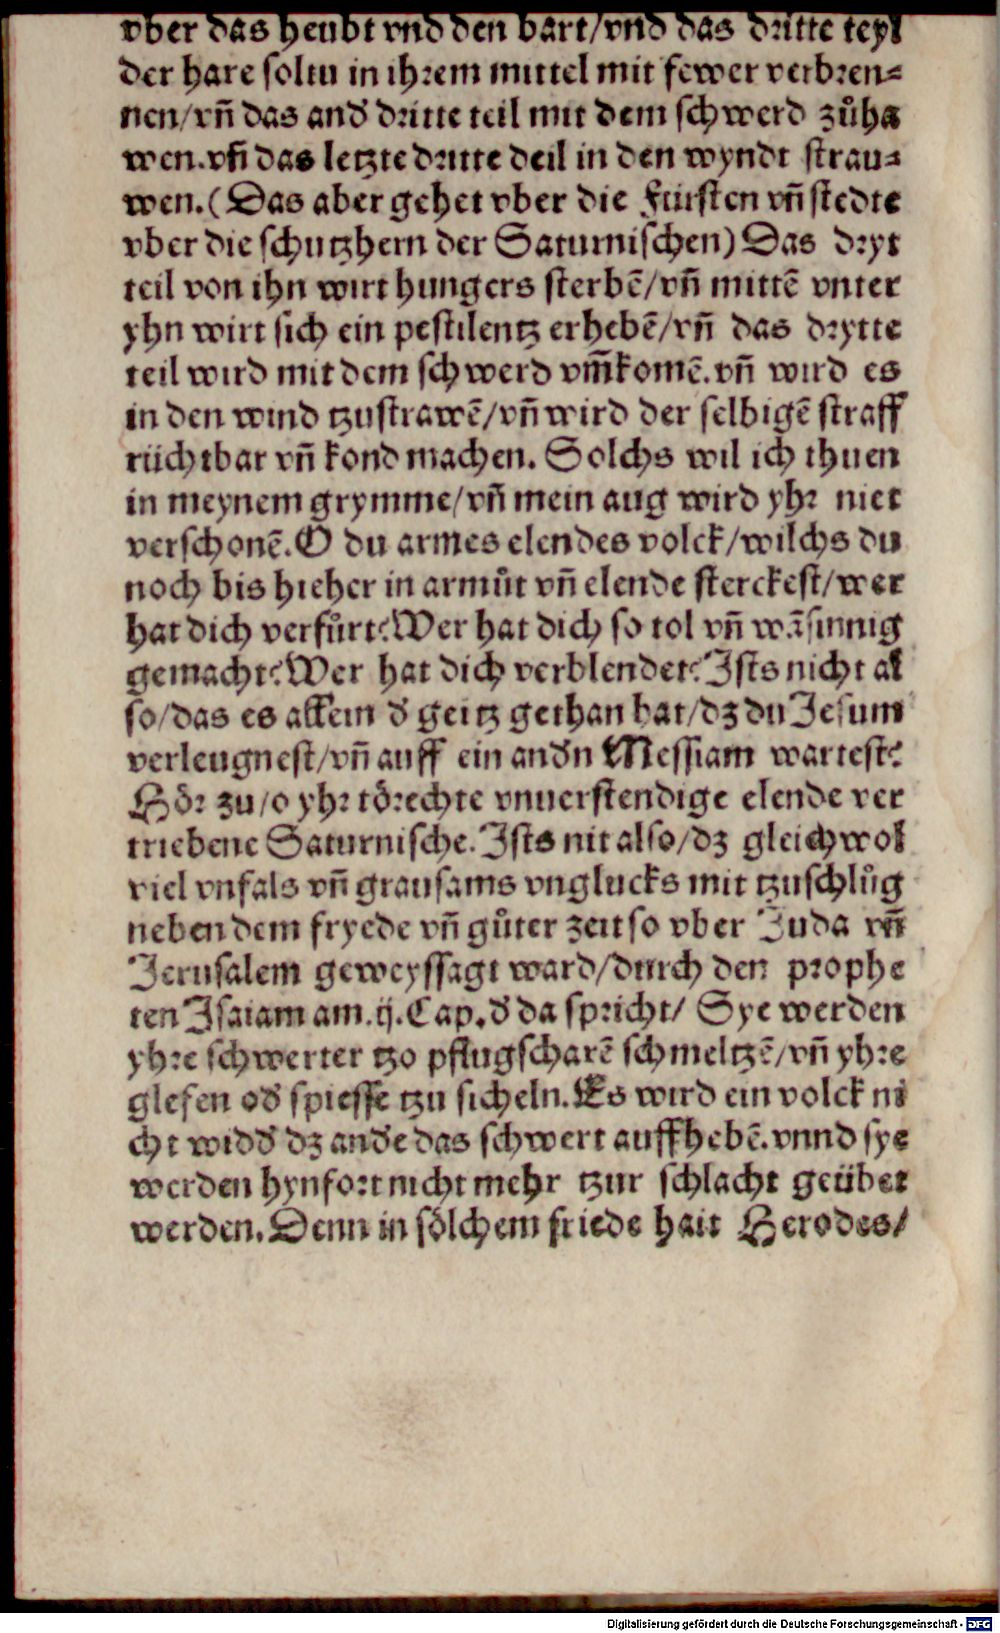 vber das heubt vnd den bart/vnd das dritte teyl
der hare soltu in ihrem mittel mit fewer verbren⸗
nen/vñ das andď dritte teil mit dem schwerd zůha
wen.vñ das letzte dritte deil in den wyndt strau⸗
wen.(Das aber gehet vber die Fürsten vñ stedte
vber die schutzhern der Saturnischen) Das dryt
teil von ihn wirt hungers sterbē/vñ mittē vnter
yhn wirt sich ein pestilentz erhebē/vñ das drytte
teil wird mit dem schwerd vm̃komē.vñ wird es
in den wind tzustrawē/vñ wird der selbigē straff
rüchtbar vñ kond machen. Solchs wil ich thuen
in meynem grymme/vñ mein aug wird yhr niet
verschonē.O du armes elendes volck/wilchs du
noch bis hieher in armůt vñ elende sterckest/wer
hat dich verfůrt?Wer hat dich so tol vñ wāsinnig
gemacht?Wer hat dich verblendet?Ists nicht al
so/das es allein ď geitz gethan hat/dz du Jesum
verleugnest/vñ auff ein andďn Messiam wartest?
Hör zu/o yhr törechte vnuerstendige elende ver
triebene Saturnische.Ists nit also/dz gleichwol
viel vnfals vñ grausams vnglucks mit tzuschlůg
neben dem fryede vñ gůter zeit so vber Juda vñ
Jerusalem geweyssagt ward/durch den prophe
ten Isaiam am.ij.Cap.ď da spricht/ Sye werden
yhre schwerter tzo pflugscharē schmeltzē/vñ yhre
glefen oď spiesse tzu sicheln.Es wird ein volck ni
cht widď dz andďe das schwert auffhebē.vnnd sye
werden hynfort nicht mehr tzur schlacht geübet
werden.Denn in sölchem friede hait Herodes/
Digitalisierung gefördert durch die Deutsche Forschungsgemeinschaft - DFG